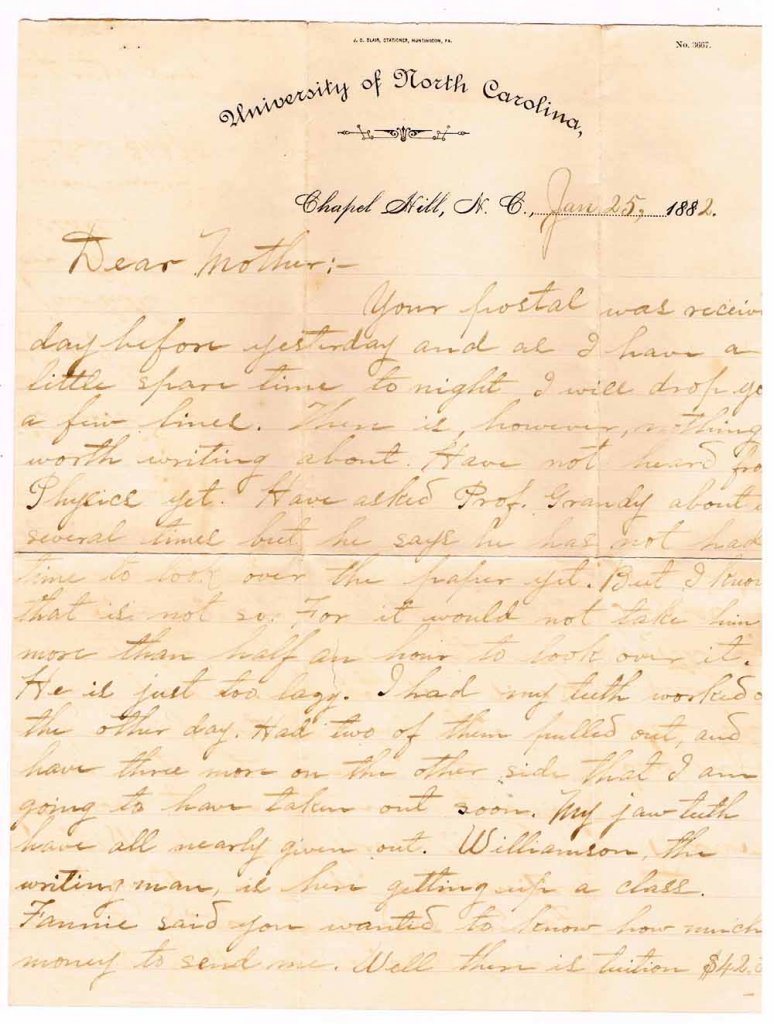 J. C. BLAIR, STATIONER, HUNTINGDON, PA.
No. 3667.
University of North Carolina,
Chapel Hill, N. C., Jan 25, 1882.
Dear Mother:-
Your postal was receiv
day before yesterday and as I have a
little spare time to night I will drop yo
a few lines. There is, however, nothing
worth writing about. Have not heard fro
Physics yet. Have asked Prof. Grandy about
several times but he says he has not had
time to look over the paper yet. But I know
that is not so. For it would not take him
more than half an hour to look over it.
He is just too lazy. I had my teeth worked o
the other day. Had two of them pulled out, and
have three more on the other side that I am
going to have taken out soon. My jaw teeth
have all nearly given out. Williamson, the
writing man, is here getting up a class.
Fannie said you wanted to know how much
money to send me. Well there is tuition $42.